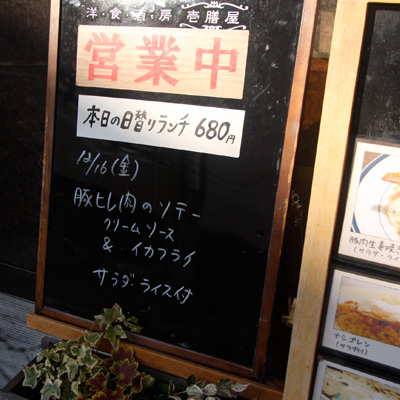 洋・食・酒・房 壱膳屋
営業中
本日の日替りランチ 680円
10/16(金)
豚ヒレ肉のソテー
クリームソース
& イカフライ
サラダ・ライス付
豚肉生姜焼き
(サラダ・ライ
ナシゴレン
(サラダ付)